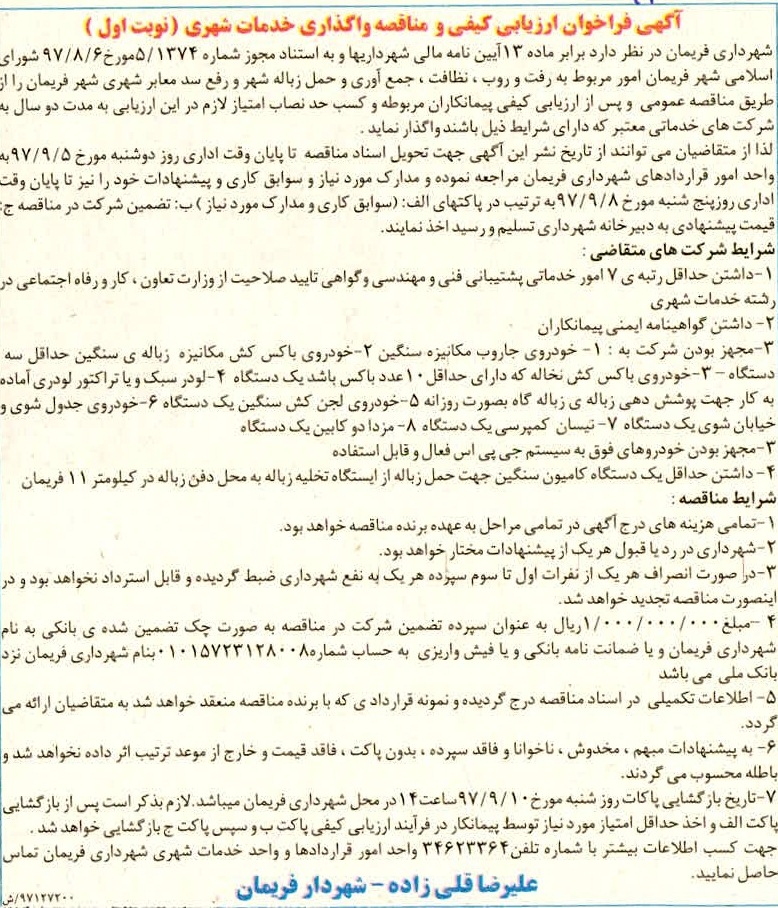 آگهی فراخوان ارزیابی کیفی و مناقصه واگذاری خدمات شهری (نوبت اول)
شهرداری فریمان در نظر دارد برابر ماده ۱۳آیین نامه مالی شهرداریها و به استناد مجوز شماره ۵/۱۳۷۴مورخ۹۷/۸/۶ شورای
اسلامی شهر فریمان امور مربوط به رفت و روب ، نظافت ، جمع آوری و حمل زباله شهر و رفع سد معابر شهری شهر فریمان را از
طریق مناقصه عمومی و پس از ارزیابی کیفی پیمانکاران مربوطه و کسب حد نصاب امتیاز لازم در این ارزیابی به مدت دو سال به
شرکت های خدماتی معتبر که دارای شرایط ذیل باشندواگذار نماید .
لذا از متقاضیان می توانند از تاریخ نشر این آگهی جهت تحویل اسناد مناقصه تا پایان وقت اداری روز دوشنبه مورخ ۹۷/۹/۵به
واحد امور قراردادهای شهرداری فریمان مراجعه نموده و مدارک مورد نیاز و سوابق کاری و پیشنهادات خود را نیز تا پایان وقت
اداری روزپنج شنبه مورخ ۹۷/۹/۸به ترتیب در پاکتهای الف: (سوابق کاری و مدارک مورد نیاز ) ب: تضمین شرکت در مناقصه ج:
قیمت پیشنهادی به دبیرخانه شهرداری تسلیم و رسید اخذ نمایند.
شرایط شرکت های متقاضی :
۱-داشتن حداقل رتبه ی ۷ امور خدماتی پشتیبانی فنی و مهندسی وگواهی تایید صلاحیت از وزارت تعاون ، کار و رفاه اجتماعی در
رشته خدمات شهری
۲- داشتن گواهینامه ایمنی پیمانکاران
۳-مجهز بودن شرکت به : ۱- خودروی جاروب مکانیزه سنگین ۲-خودروی باکس کش مکانیزه زباله ی سنگین حداقل سه
دستگاه – ۳-خودروی باکس کش نخاله که دارای حداقل۱۰عدد باکس باشد یک دستگاه ۴-لودر سبک و یا تراکتور لودری آماده
به کار جهت پوشش دهی زباله ی زباله گاه بصورت روزانه ۵-خودروی لجن کش سنگین یک دستگاه ۶-خودروی جدول شوی و
خیابان شوی یک دستگاه ۷- نیسان کمپرسی یک دستگاه ۸- مزدا دو کابین یک دستگاه
۳-مجهز بودن خودروهای فوق به سیستم جی پی اس فعال و قابل استفاده
۴- داشتن حداقل یک دستگاه کامیون سنگین جهت حمل زباله از ایستگاه تخلیه زباله به محل دفن زباله در کیلومتر ۱۱ فریمان
شرایط مناقصه :
۱-تمامی هزینه های درج آگهی در تمامی مراحل به عهده برنده مناقصه خواهد بود.
۲-شهرداری در رد یا قبول هر یک از پیشنهادات مختار خواهد بود.
۳-در صورت انصراف هر یک از نفرات اول تا سوم سپرده هر یک به نفع شهرداری ضبط گردیده و قابل استرداد نخواهد بود و در
اینصورت مناقصه تجدید خواهد شد.
۴ -مبلغ۱/۰۰۰/۰۰۰/۰۰۰ریال به عنوان سپرده تضمین شرکت در مناقصه به صورت چک تضمین شده ی بانکی به نام
شهرداری فریمان و یا ضمانت نامه بانکی و یا فیش واریزی به حساب شماره۰۱۰۱۵۷۲۳۱۲۸۰۰۸بنام شهرداری فریمان نزد
بانک ملی می باشد
۵- اطلاعات تکمیلی در اسناد مناقصه درج گردیده و نمونه قرارداد ی که با برنده مناقصه منعقد خواهد شد به متقاضیان ارائه می
گردد.
۶- به پیشنهادات مبهم ، مخدوش ، ناخوانا و فاقد سپرده ، بدون پاکت ، فاقد قیمت و خارج از موعد ترتیب اثر داده نخواهد شد و
باطله محسوب می گردند.
۷-تاریخ بازگشایی پاکات روز شنبه مورخ۹۷/۹/۱۰ساعت۱۴در محل شهرداری فریمان میباشد.لازم بذکر است پس از بازگشایی
پاکت الف و اخذ حداقل امتیاز مورد نیاز توسط پیمانکار در فرآیند ارزیابی کیفی پاکت ب و سپس پاکت ج بازگشایی خواهد شد .
جهت کسب اطلاعات بیشتر با شماره تلفن۳۴۶۲۳۳۶۴ واحد امور قراردادها و واحد خدمات شهری شهرداری فریمان تماس
حاصل نمایید.
علیرضا قلی زاده - شهردار فریمان
۹۷۱۲۷۲۰۰/ش